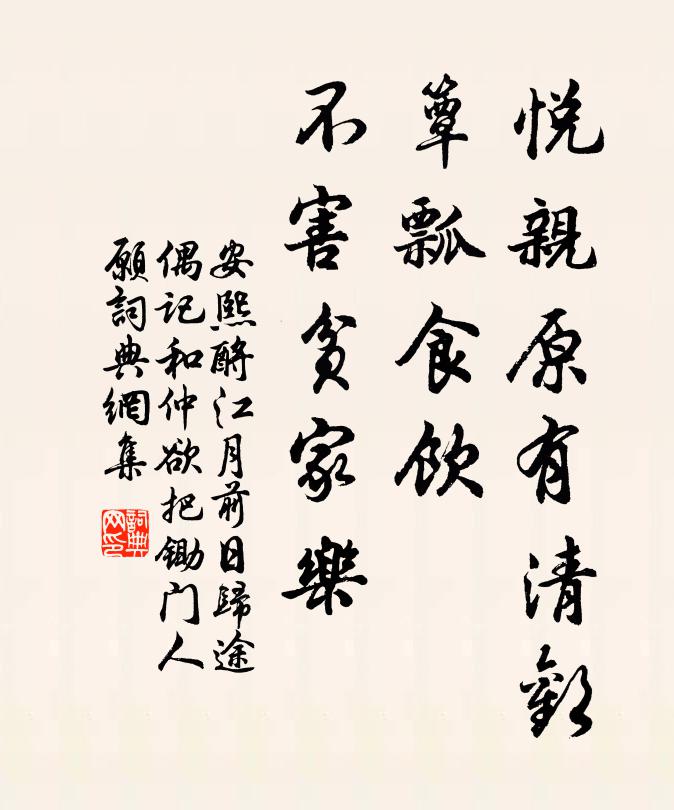 悅親原有清歡
簞瓢食飲
不害貧家樂
安熙酹江月前日歸途
偶記和仲欲把鋤門人
願詞典網集
詞典
网印